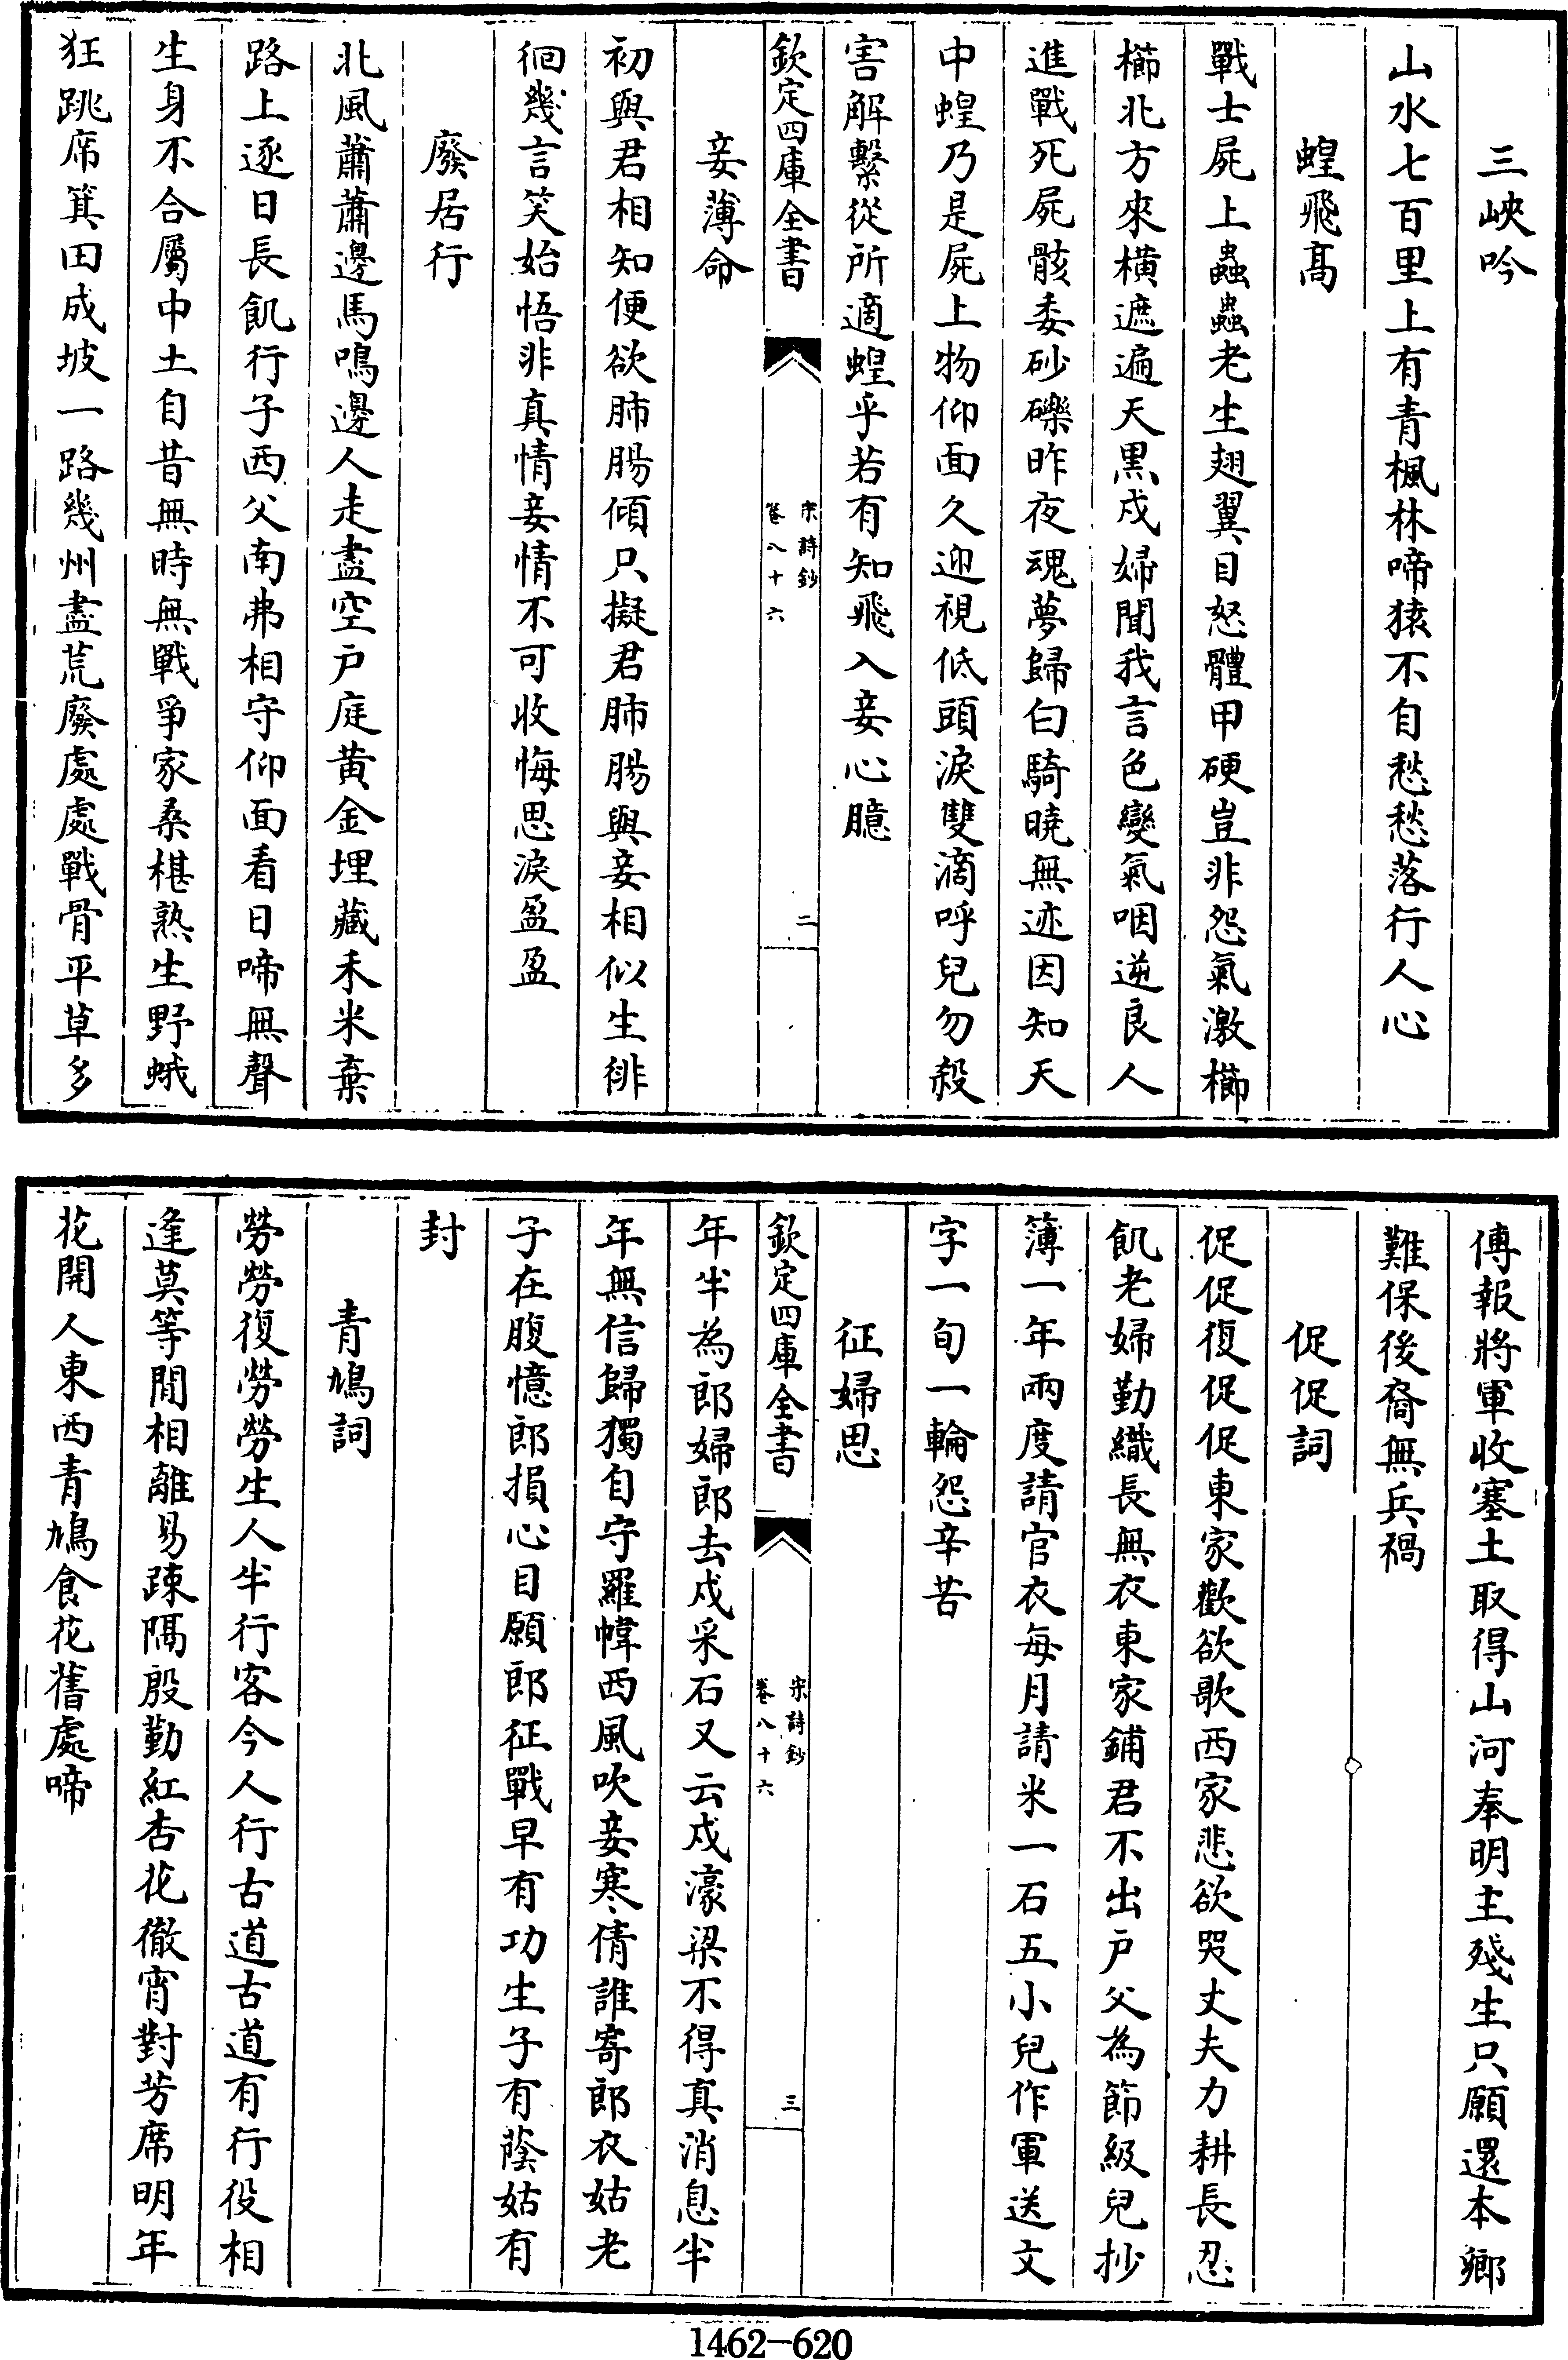 三峽吟
山水七百里上有青楓林啼猿不自愁愁落行人心
蝗飛高
戰士屍上蟲蟲老生翅翼目怒體甲硬豈非怨氣激櫛
櫛北方來橫遮遍天黑戍婦聞我言色變氣咽逆良人
進戰死屍骸委砂礫昨夜魂夢歸白騎曉無迹因知天
中蝗乃是屍上物仰面久迎視低頭淚雙滴呼兒勿殺
害解繫從所適蝗乎若有知飛入妾心臆
欽定四庫全書
宋詩鈔
卷八十六
二
妾薄命
初與君相知便欲肺腸傾只擬君肺腸與妾相似生徘
徊幾言笑始悟非真情妾情不可收悔思淚盈盈
廢居行
北風蕭蕭邊馬鳴邊人走盡空戶庭黃金埋藏禾米棄
路上逐日長飢行子西父南弗相守仰面看日啼無聲
生身不合屬中土自昔無時無戰爭家桑椹熟生野蛾
狂跳席箕田成坡一路幾州盡荒廢處處戰骨平草多
傳報將軍收塞土取得山河奉明主殘生只願還本鄉
難保後裔無兵禍
促促詞
促促復促促東家歡欲歌西家悲欲哭丈夫力耕長忍
飢老婦勤織長無衣東家鋪君不出戶父為節級兒抄
簿一年兩度請官衣每月請米一石五小兒作軍送文
字一旬一輪怨辛苦
征婦思
欽定四庫全書
宋詩鈔
卷八十六
三
年半為郎婦郎去戍采石又云戍濠梁不得真消息半
年無信歸獨自守羅幃西風吹妾寒倩誰寄郎衣姑老
子在腹憶郎損心目願郎征戰早有功生子有蔭姑有
封
青鳩詞
勞勞復勞勞生人半行客今人行古道古道有行役相
逢莫等閒相離易踈隔殷勤紅杏花徹宵對芳席明年
花開人東西青鳩食花舊處啼
1462-620